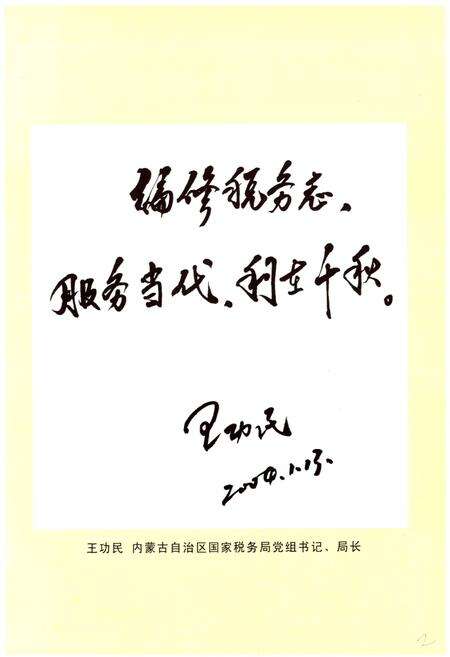 编修税务志、
服务当代、利在千秋。
王功民
2004.1.13.
王功民 内蒙古自治区国家税务局党组书记、局长
2